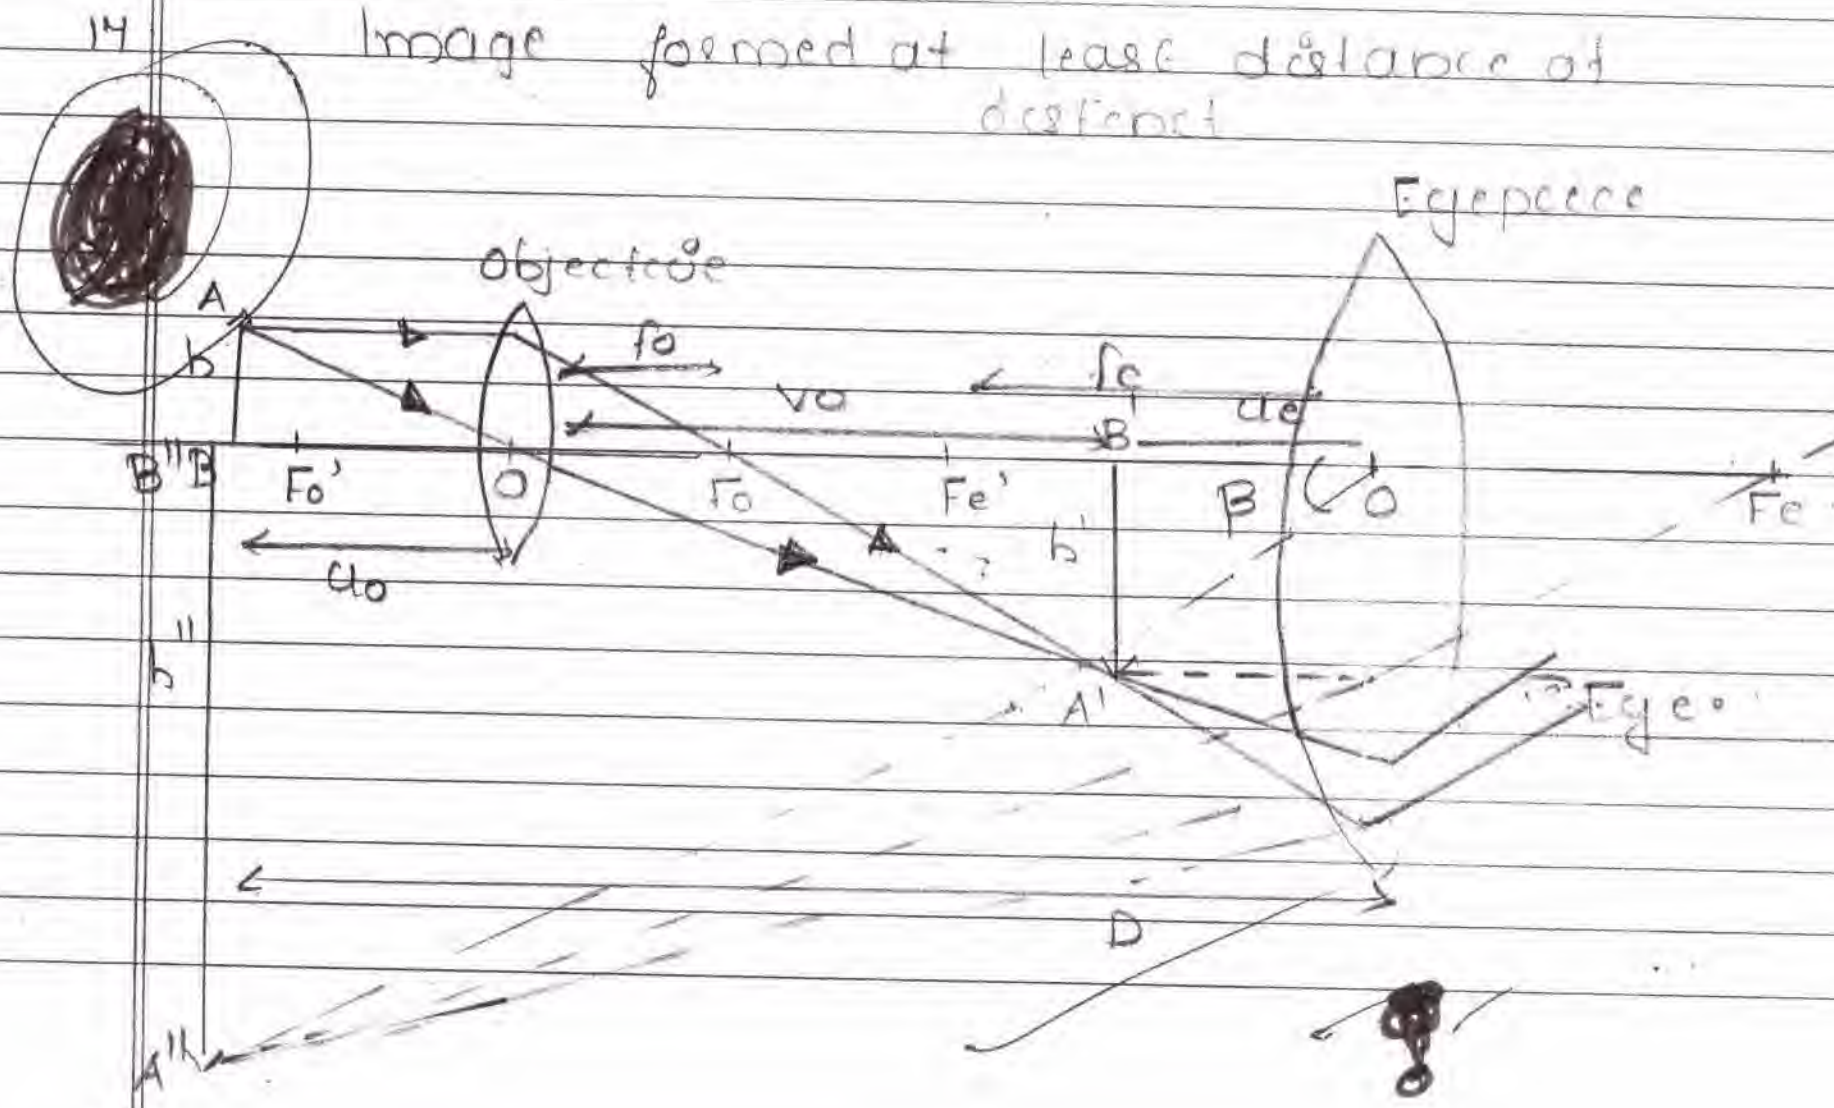 14
Image formed at least distance of
distenct
Eyepiece
Objective
A
h
fo
fe
vo
ue
B'
B" B
Fo'
O
Fo
Fe'
β
O
Fe
h'
uo
h"
A'
Eye
D
A"